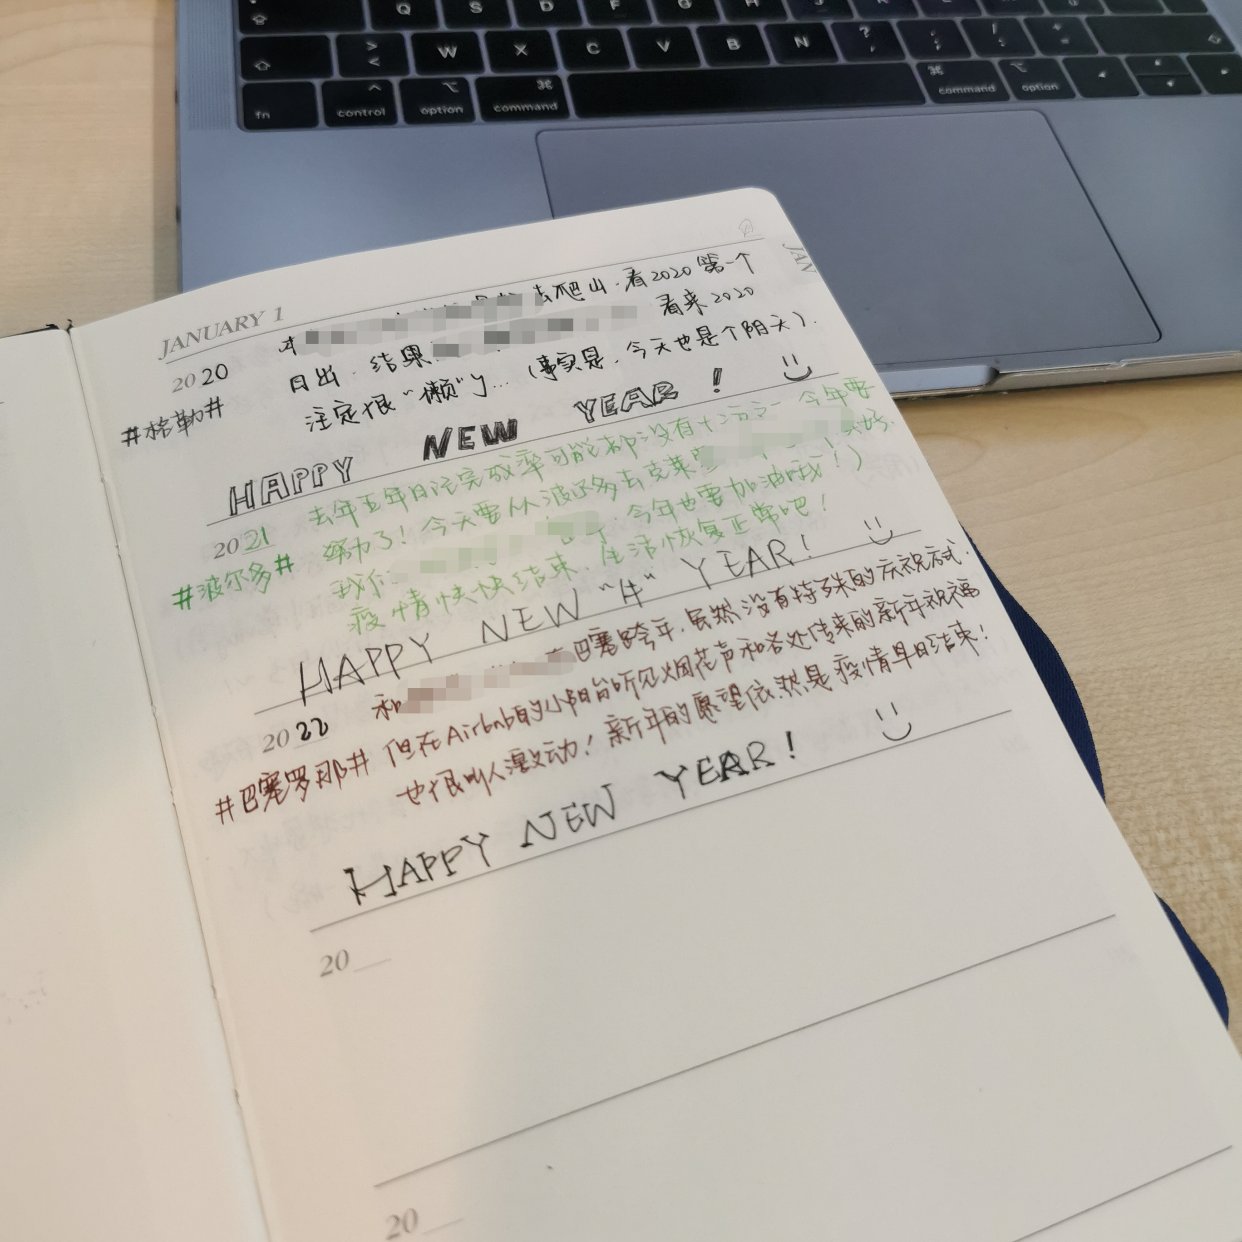 Q S D F G H J K L
> < W X C V B N ? , . ; / : + =
fn control option command command option
JAN
JANUARY 1
去爬山，看2020第一个
2020 日出，结果 看来2020
#格勒# 注定很“懒”了...（事实是，今天也是个阴天）.
HAPPY NEW YEAR !
去年五年日记完成率可能都没有十分之一 今年要
2021 努力了！今天要从波尔多去克莱
#波尔多# 我们 今年也要加油哦！）
疫情快快结束，生活恢复正常吧！
HAPPY NEW "牛" YEAR!
和 巴塞跨年，虽然没有特殊的庆祝方式，
2022 但在Airbnb的小阳台听见烟花声和各处传来的新年祝福
#巴塞罗那# 也很叫人激动！新年的愿望依然是疫情早日结束！
HAPPY NEW YEAR!
20
20